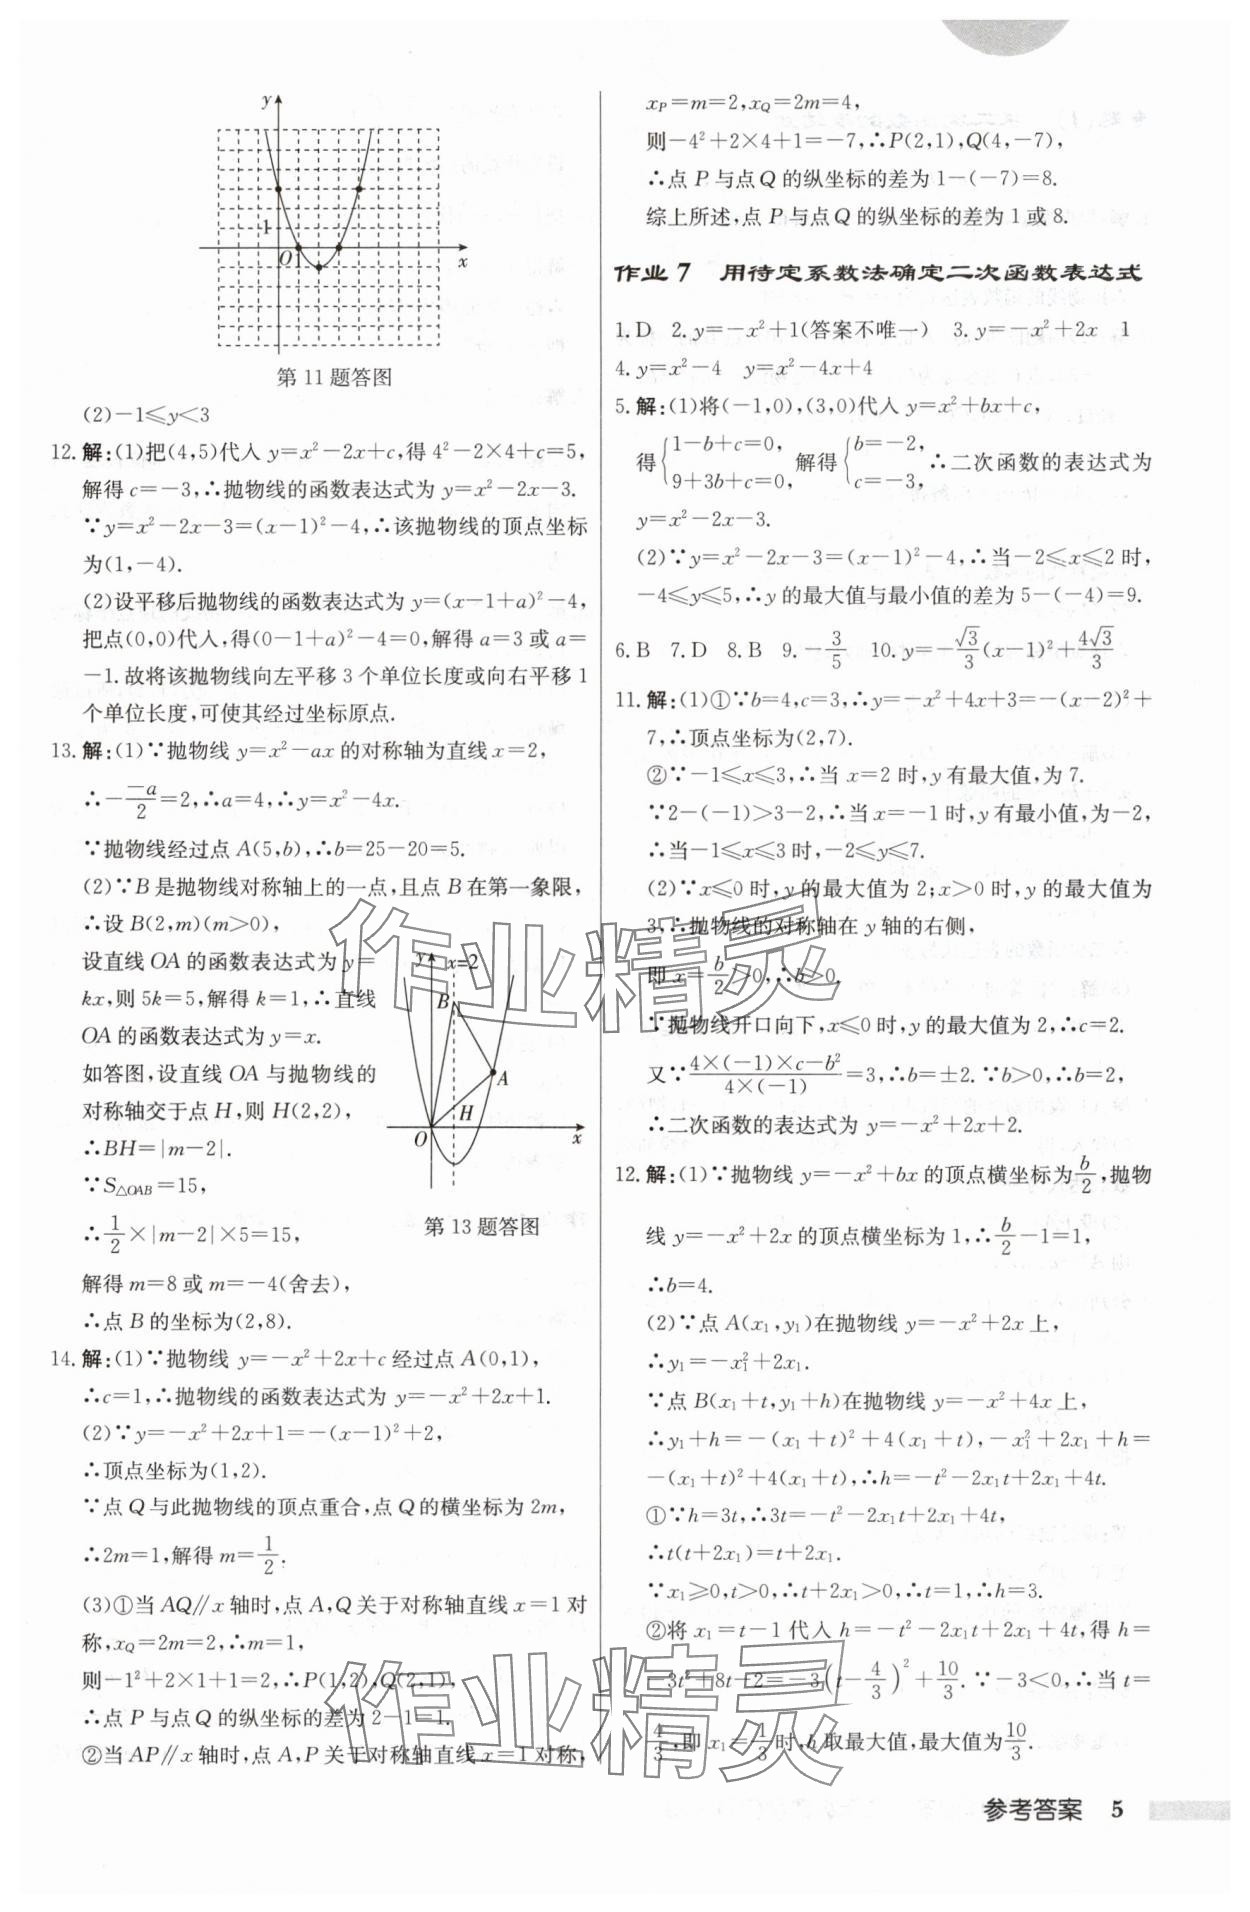 y
1
O
1
x
第11题答图
(2)-1≤y<3
12.解:(1)把(4,5)代入 y=x²-2x+c,得 4²-2×4+c=5,
解得 c=-3,∴抛物线的函数表达式为 y=x²-2x-3.
∵y=x²-2x-3=(x-1)²-4,∴该抛物线的顶点坐标
为(1,-4).
(2)设平移后抛物线的函数表达式为 y=(x-1+a)²-4,
把点(0,0)代入,得(0-1+a)²-4=0,解得 a=3 或 a=
-1.故将该抛物线向左平移 3 个单位长度或向右平移 1
个单位长度,可使其经过坐标原点.
13.解:(1)∵抛物线 y=x²-ax 的对称轴为直线 x=2,
∴-\frac{-a}{2}=2,∴a=4,∴y=x²-4x.
∵抛物线经过点 A(5,b),∴b=25-20=5.
(2)∵B 是抛物线对称轴上的一点,且点 B 在第一象限,
∴设 B(2,m)(m>0),
设直线 OA 的函数表达式为 y=
kx,则 5k=5,解得 k=1,∴直线
OA 的函数表达式为 y=x.
如答图,设直线 OA 与抛物线的
对称轴交于点 H,则 H(2,2),
∴BH=|m-2|.
∵S△OAB=15,
∴\frac{1}{2}×|m-2|×5=15,
y
x=2
B
A
H
O
x
第13题答图
解得 m=8 或 m=-4(舍去),
∴点 B 的坐标为(2,8).
14.解:(1)∵抛物线 y=-x²+2x+c 经过点 A(0,1),
∴c=1,∴抛物线的函数表达式为 y=-x²+2x+1.
(2)∵y=-x²+2x+1=-(x-1)²+2,
∴顶点坐标为(1,2).
∵点 Q 与此抛物线的顶点重合,点 Q 的横坐标为 2m,
∴2m=1,解得 m=\frac{1}{2}.
(3)①当 AQ∥x 轴时,点 A,Q 关于对称轴直线 x=1 对
称,x_Q=2m=2,∴m=1,
则-1²+2×1+1=2,∴P(1,2),Q(2,1),
∴点 P 与点 Q 的纵坐标的差为 2-1=1.
②当 AP∥x 轴时,点 A,P 关于对称轴直线 x=1 对称,
x_P=m=2,x_Q=2m=4,
则-4²+2×4+1=-7,∴P(2,1),Q(4,-7),
∴点 P 与点 Q 的纵坐标的差为 1-(-7)=8.
综上所述,点 P 与点 Q 的纵坐标的差为 1 或 8.
作业7 用待定系数法确定二次函数表达式
1.D 2.y=-x²+1(答案不唯一) 3.y=-x²+2x 1
4.y=x²-4 y=x²-4x+4
5.解:(1)将(-1,0),(3,0)代入 y=x²+bx+c,
得{1-b+c=0, 9+3b+c=0, 解得{b=-2, c=-3, ∴二次函数的表达式为
y=x²-2x-3.
(2)∵y=x²-2x-3=(x-1)²-4,∴当-2≤x≤2 时,
-4≤y≤5,∴y 的最大值与最小值的差为 5-(-4)=9.
6.B 7.D 8.B 9.-\frac{3}{5} 10.y=-\frac{√3}{3}(x-1)²+\frac{4√3}{3}
11.解:(1)①∵b=4,c=3,∴y=-x²+4x+3=-(x-2)²+
7,∴顶点坐标为(2,7).
②∵-1≤x≤3,∴当 x=2 时,y 有最大值,为 7.
∵2-(-1)>3-2,∴当 x=-1 时,y 有最小值,为-2,
∴当-1≤x≤3 时,-2≤y≤7.
(2)∵x≤0 时,y 的最大值为 2;x>0 时,y 的最大值为
3,∴抛物线的对称轴在 y 轴的右侧,
即 x=\frac{b}{2}>0,∴b>0.
∵抛物线开口向下,x≤0 时,y 的最大值为 2,∴c=2.
又∵\frac{4×(-1)×c-b²}{4×(-1)}=3,∴b=±2.∵b>0,∴b=2,
∴二次函数的表达式为 y=-x²+2x+2.
12.解:(1)∵抛物线 y=-x²+bx 的顶点横坐标为\frac{b}{2},抛物
线 y=-x²+2x 的顶点横坐标为 1,∴\frac{b}{2}-1=1,
∴b=4.
(2)∵点 A(x₁,y₁)在抛物线 y=-x²+2x 上,
∴y₁=-x₁²+2x₁.
∵点 B(x₁+t,y₁+h)在抛物线 y=-x²+4x 上,
∴y₁+h=-(x₁+t)²+4(x₁+t),-x₁²+2x₁+h=
-(x₁+t)²+4(x₁+t),∴h=-t²-2x₁t+2x₁+4t.
①∵h=3t,∴3t=-t²-2x₁t+2x₁+4t,
∴t(t+2x₁)=t+2x₁.
∵x₁≥0,t>0,∴t+2x₁>0,∴t=1,∴h=3.
②将 x₁=t-1 代入 h=-t²-2x₁t+2x₁+4t,得 h=
-3t²+8t-2=-3(t-\frac{4}{3})²+\frac{10}{3}.∵-3<0,∴当 t=
\frac{4}{3},即 x₁=\frac{1}{3}时,h 取最大值,最大值为\frac{10}{3}.
作业精灵
作业精灵
参考答案 5